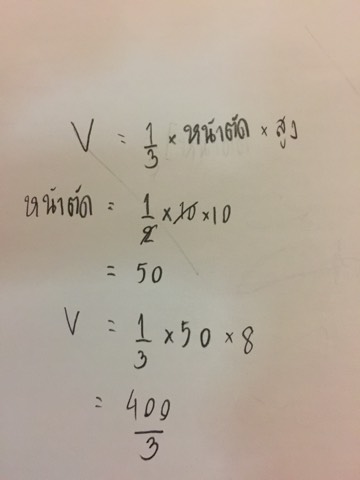 V = 1/3 × หน้าตัด × สูง
หน้าตัด = 1/2 × 10 × 10
= 50
V = 1/3 × 50 × 8
= 400/3